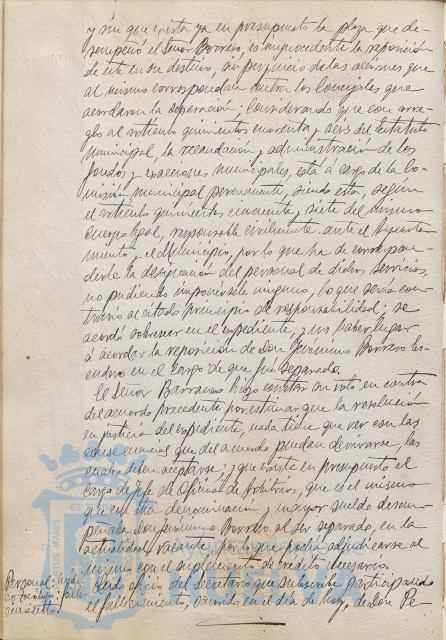 y sin que exista ya en presupuesto la plaza que de-
sempeñó el Señor Borrero, es improcedente la reposición
de este en su destino, sin perjuicio de las acciones que
al mismo correspondan contra los Concejales que
acordaron la separación: Considerando que con arre-
glo al artículo quinientos cuarenta y seis del Estatuto
Municipal, la recaudación y administración de los
fondos y exacciones municipales, está a cargo de la Co-
misión municipal permanente, siendo esta, según
el artículo quinientos cincuenta y siete del mismo
Cuerpo legal, responsable civilmente ante el Ayunta-
miento y el Municipio, por lo que ha de correspon-
derle la designación del personal de dichos servicios,
no pudiendo imponérsele ninguno, lo que sería con-
trario al citado principio de responsabilidad: se
acordó sobreseer en el expediente, y no haber lugar
á acordar la reposición de Don Jerónimo Borrero Les-
endero en el Cargo de que fué separado.
El Señor Barranco hizo constar su voto en contra
del acuerdo precedente por estimar que la resolución
en justicia del expediente, nada tiene que ver con las
consecuencias que del acuerdo puedan derivarse, las
cuales deben aceptarse; y que existe en presupuesto el
cargo de Jefe de Oficinas de Arbitrios, que es el mismo
que con otra denominación y mayor sueldo desem-
peñaba Don Jerónimo Borrero al ser separado, en la
actualidad vacante, por lo que podría adjudicarse al
mismo con el suplemento de crédito necesario.
Personal:
falle-
cimiento.
Leido oficio del Secretario que suscribe participando
el fallecimiento, ocurrido en el día de hoy, de Don Pe-